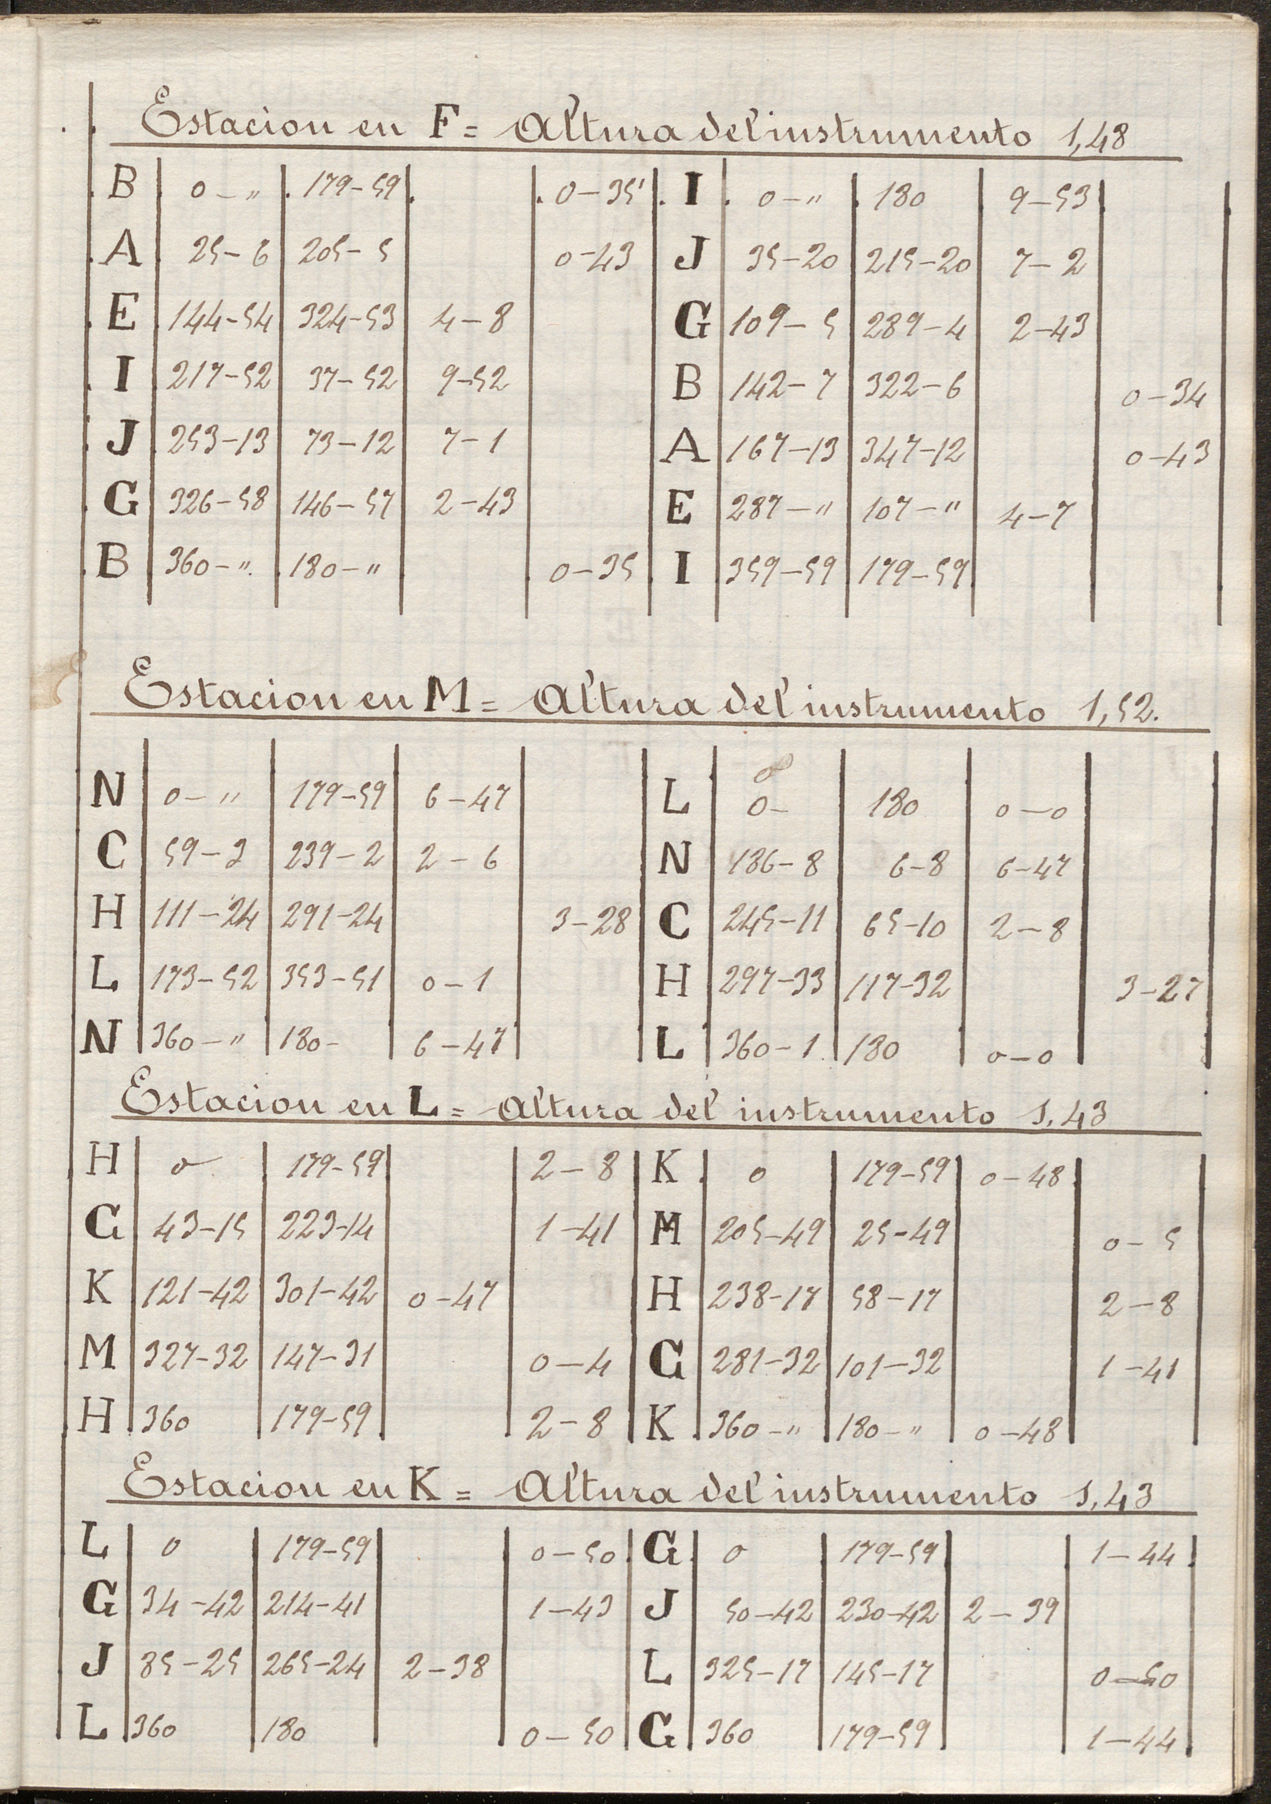 Estacion en F = Altura del instrumento 1,48
B 0-„ 179-59 0-35' I 0-„ 180 9-53
A 25-6 205-5 0-43 J 35-20 215-20 7-2
E 144-54 324-53 4-8 G 109-5 289-4 2-43
I 217-52 37-52 9-52 B 142-7 322-6 0-34
J 253-13 73-12 7-1 A 167-13 347-12 0-43
G 326-58 146-57 2-43 E 287-„ 107-„ 4-7
B 360-„ 180-„ 0-35 I 359-59 179-59
Estacion en M = Altura del instrumento 1,52.
N 0-„ 179-59 6-47 L 0- 180 0-0
C 59-2 239-2 2-6 N 186-8 6-8 6-47
H 111-24 291-24 3-28 C 245-11 65-10 2-8
L 173-52 353-51 0-1 H 297-33 117-32 3-27
N 360-„ 180- 6-47 L 360-1 180 0-0
Estacion en L = Altura del instrumento 1,43
H 0 179-59 2-8 K 0 179-59 0-48
G 43-15 223-14 1-41 M 205-49 25-49 0-5
K 121-42 301-42 0-47 H 238-17 58-17 2-8
M 327-32 147-31 0-4 G 281-32 101-32 1-41
H 360 179-59 2-8 K 360-„ 180-„ 0-48
Estacion en K = Altura del instrumento 1,43
L 0 179-59 0-50 G 0 179-59 1-44
G 34-42 214-41 1-43 J 50-42 230-42 2-39
J 85-25 265-24 2-38 L 325-17 145-17 0-50
L 360 180 0-50 G 360 179-59 1-44